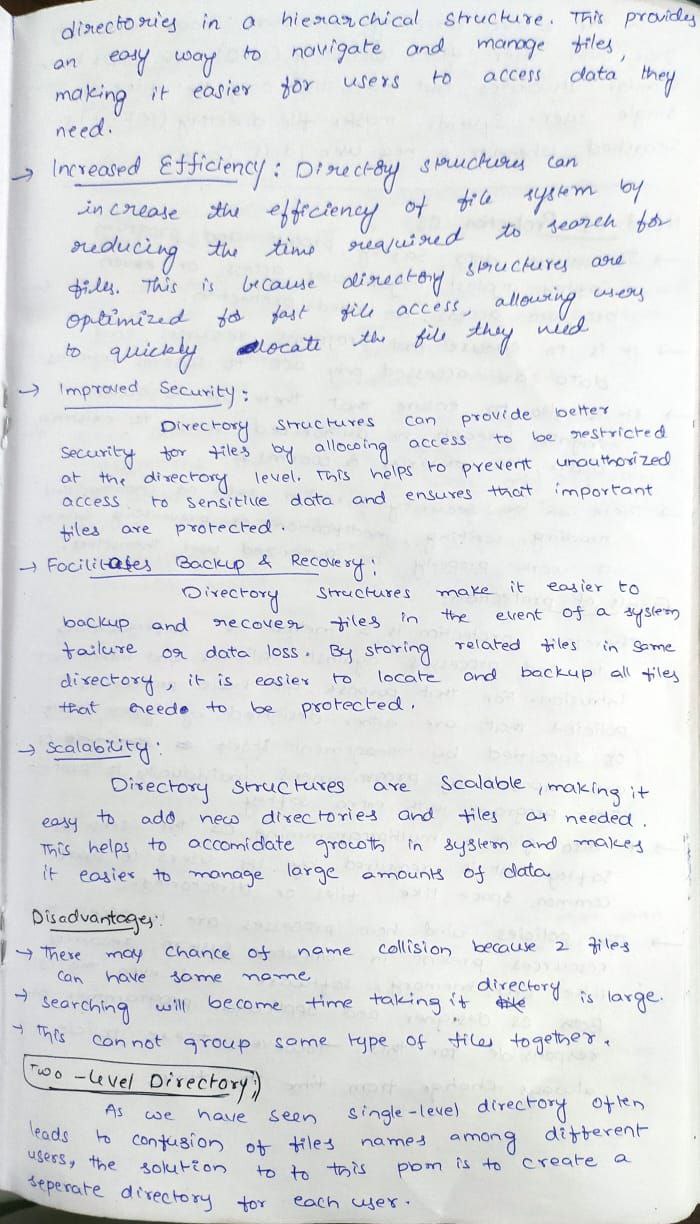 directories in a hierarchical structure. This provides
an easy way to navigate and manage files,
making it easier for users to access data they
need.
→ Increased Efficiency: Directory structures can
increase the efficiency of file system by
reducing the time required to search for
files. This is because directory structures are
optimized for fast file access, allowing users
to quickly locate the file they need
→ Improved Security:
Directory structures can provide better
security for files by allowing access to be restricted
at the directory level. This helps to prevent unauthorized
access to sensitive data and ensures that important
files are protected.
→ Facilitates Backup & Recovery:
Directory structures make it easier to
backup and recover files in the event of a system
failure or data loss. By storing related files in same
directory, it is easier to locate and backup all files
that needs to be protected.
→ Scalability:
Directory structures are Scalable, making it
easy to add new directories and files as needed.
This helps to accomidate growth in system and makes
it easier to manage large amounts of data
Disadvantages:
→ There may chance of name collision because 2 files
can have same name
→ searching will become time taking if directory is large.
→ This cannot group same type of files together.
Two-level Directory:
As we have seen single-level directory often
leads to confusion of files names among different
users, the solution to to this pbm is to create a
seperate directory for each user.